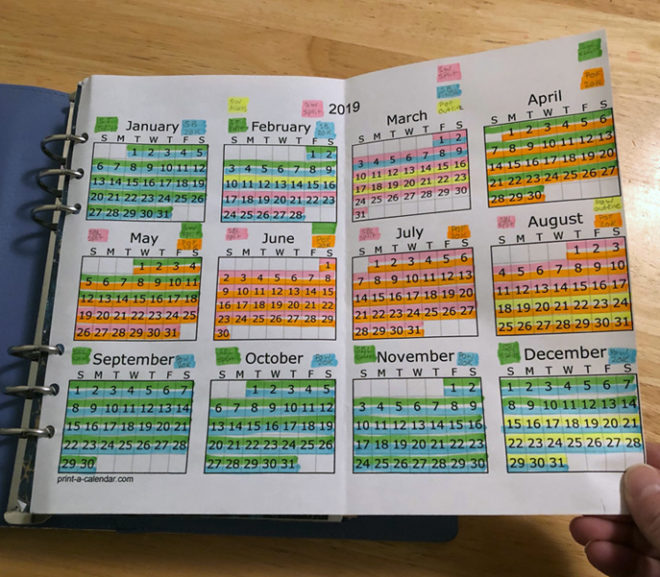 2019
January
S M T W T F S
1 2 3 4 5
6 7 8 9 10 11 12
13 14 15 16 17 18 19
20 21 22 23 24 25 26
27 28 29 30 31
February
S M T W T F S
1 2
3 4 5 6 7 8 9
10 11 12 13 14 15 16
17 18 19 20 21 22 23
24 25 26 27 28
split
March
S M T W T F S
1 2
3 4 5 6 7 8 9
10 11 12 13 14 15 16
17 18 19 20 21 22 23
24 25 26 27 28 29 30
31
April
S M T W T F S
1 2 3 4 5 6
7 8 9 10 11 12 13
14 15 16 17 18 19 20
21 22 23 24 25 26 27
28 29 30
May
S M T W T F S
1 2 3 4
5 6 7 8 9 10 11
12 13 14 15 16 17 18
19 20 21 22 23 24 25
26 27 28 29 30 31
June
S M T W T F S
1
2 3 4 5 6 7 8
9 10 11 12 13 14 15
16 17 18 19 20 21 22
23 24 25 26 27 28 29
30
July
S M T W T F S
1 2 3 4 5 6
7 8 9 10 11 12 13
14 15 16 17 18 19 20
21 22 23 24 25 26 27
28 29 30 31
August
S M T W T F S
1 2 3
4 5 6 7 8 9 10
11 12 13 14 15 16 17
18 19 20 21 22 23 24
25 26 27 28 29 30 31
September
S M T W T F S
1 2 3 4 5 6 7
8 9 10 11 12 13 14
15 16 17 18 19 20 21
22 23 24 25 26 27 28
29 30
October
S M T W T F S
1 2 3 4 5
6 7 8 9 10 11 12
13 14 15 16 17 18 19
20 21 22 23 24 25 26
27 28 29 30 31
November
S M T W T F S
1 2
3 4 5 6 7 8 9
10 11 12 13 14 15 16
17 18 19 20 21 22 23
24 25 26 27 28 29 30
December
S M T W T F S
1 2 3 4 5 6 7
8 9 10 11 12 13 14
15 16 17 18 19 20 21
22 23 24 25 26 27 28
29 30 31
print-a-calendar.com